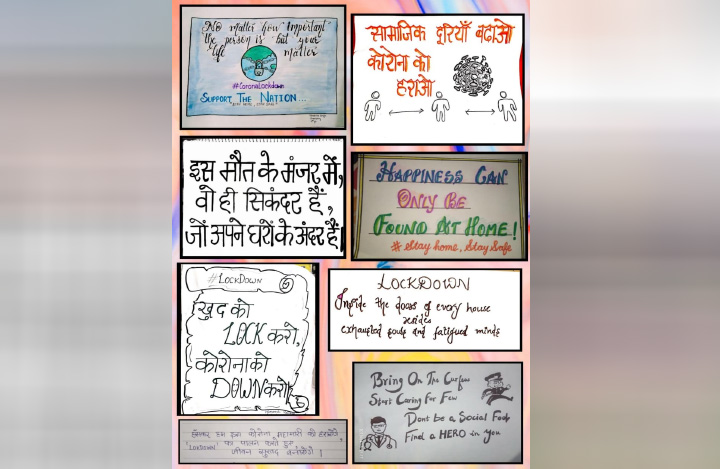 No matter how "important"
the person is but your
life matter
#CoronaLockdown
SUPPORT THE NATION...
सामाजिक दूरियाँ बढाओ
कोरोना को
हराओ
इस मौत के मंजर में,
वो ही सिकंदर हैं,
जों अपने घरों के अंदर हैं।
HAPPINESS CAN
ONLY BE
FOUND AT HOME!
# Stay home, Stay Safe
#LOCKDOWN
खुद को
LOCK करो,
कोरोना को
DOWN करो।
LOCKDOWN
Inside the doors of every house
resides
exhausted souls and fatigued minds
Bring On The Curfew
Start Caring For Few
Dont be a Social Fool
Find a HERO in you
हम इस कोरोना महामारी को हरायेंगे,
"LOCKDOWN" का पालन करते हुए